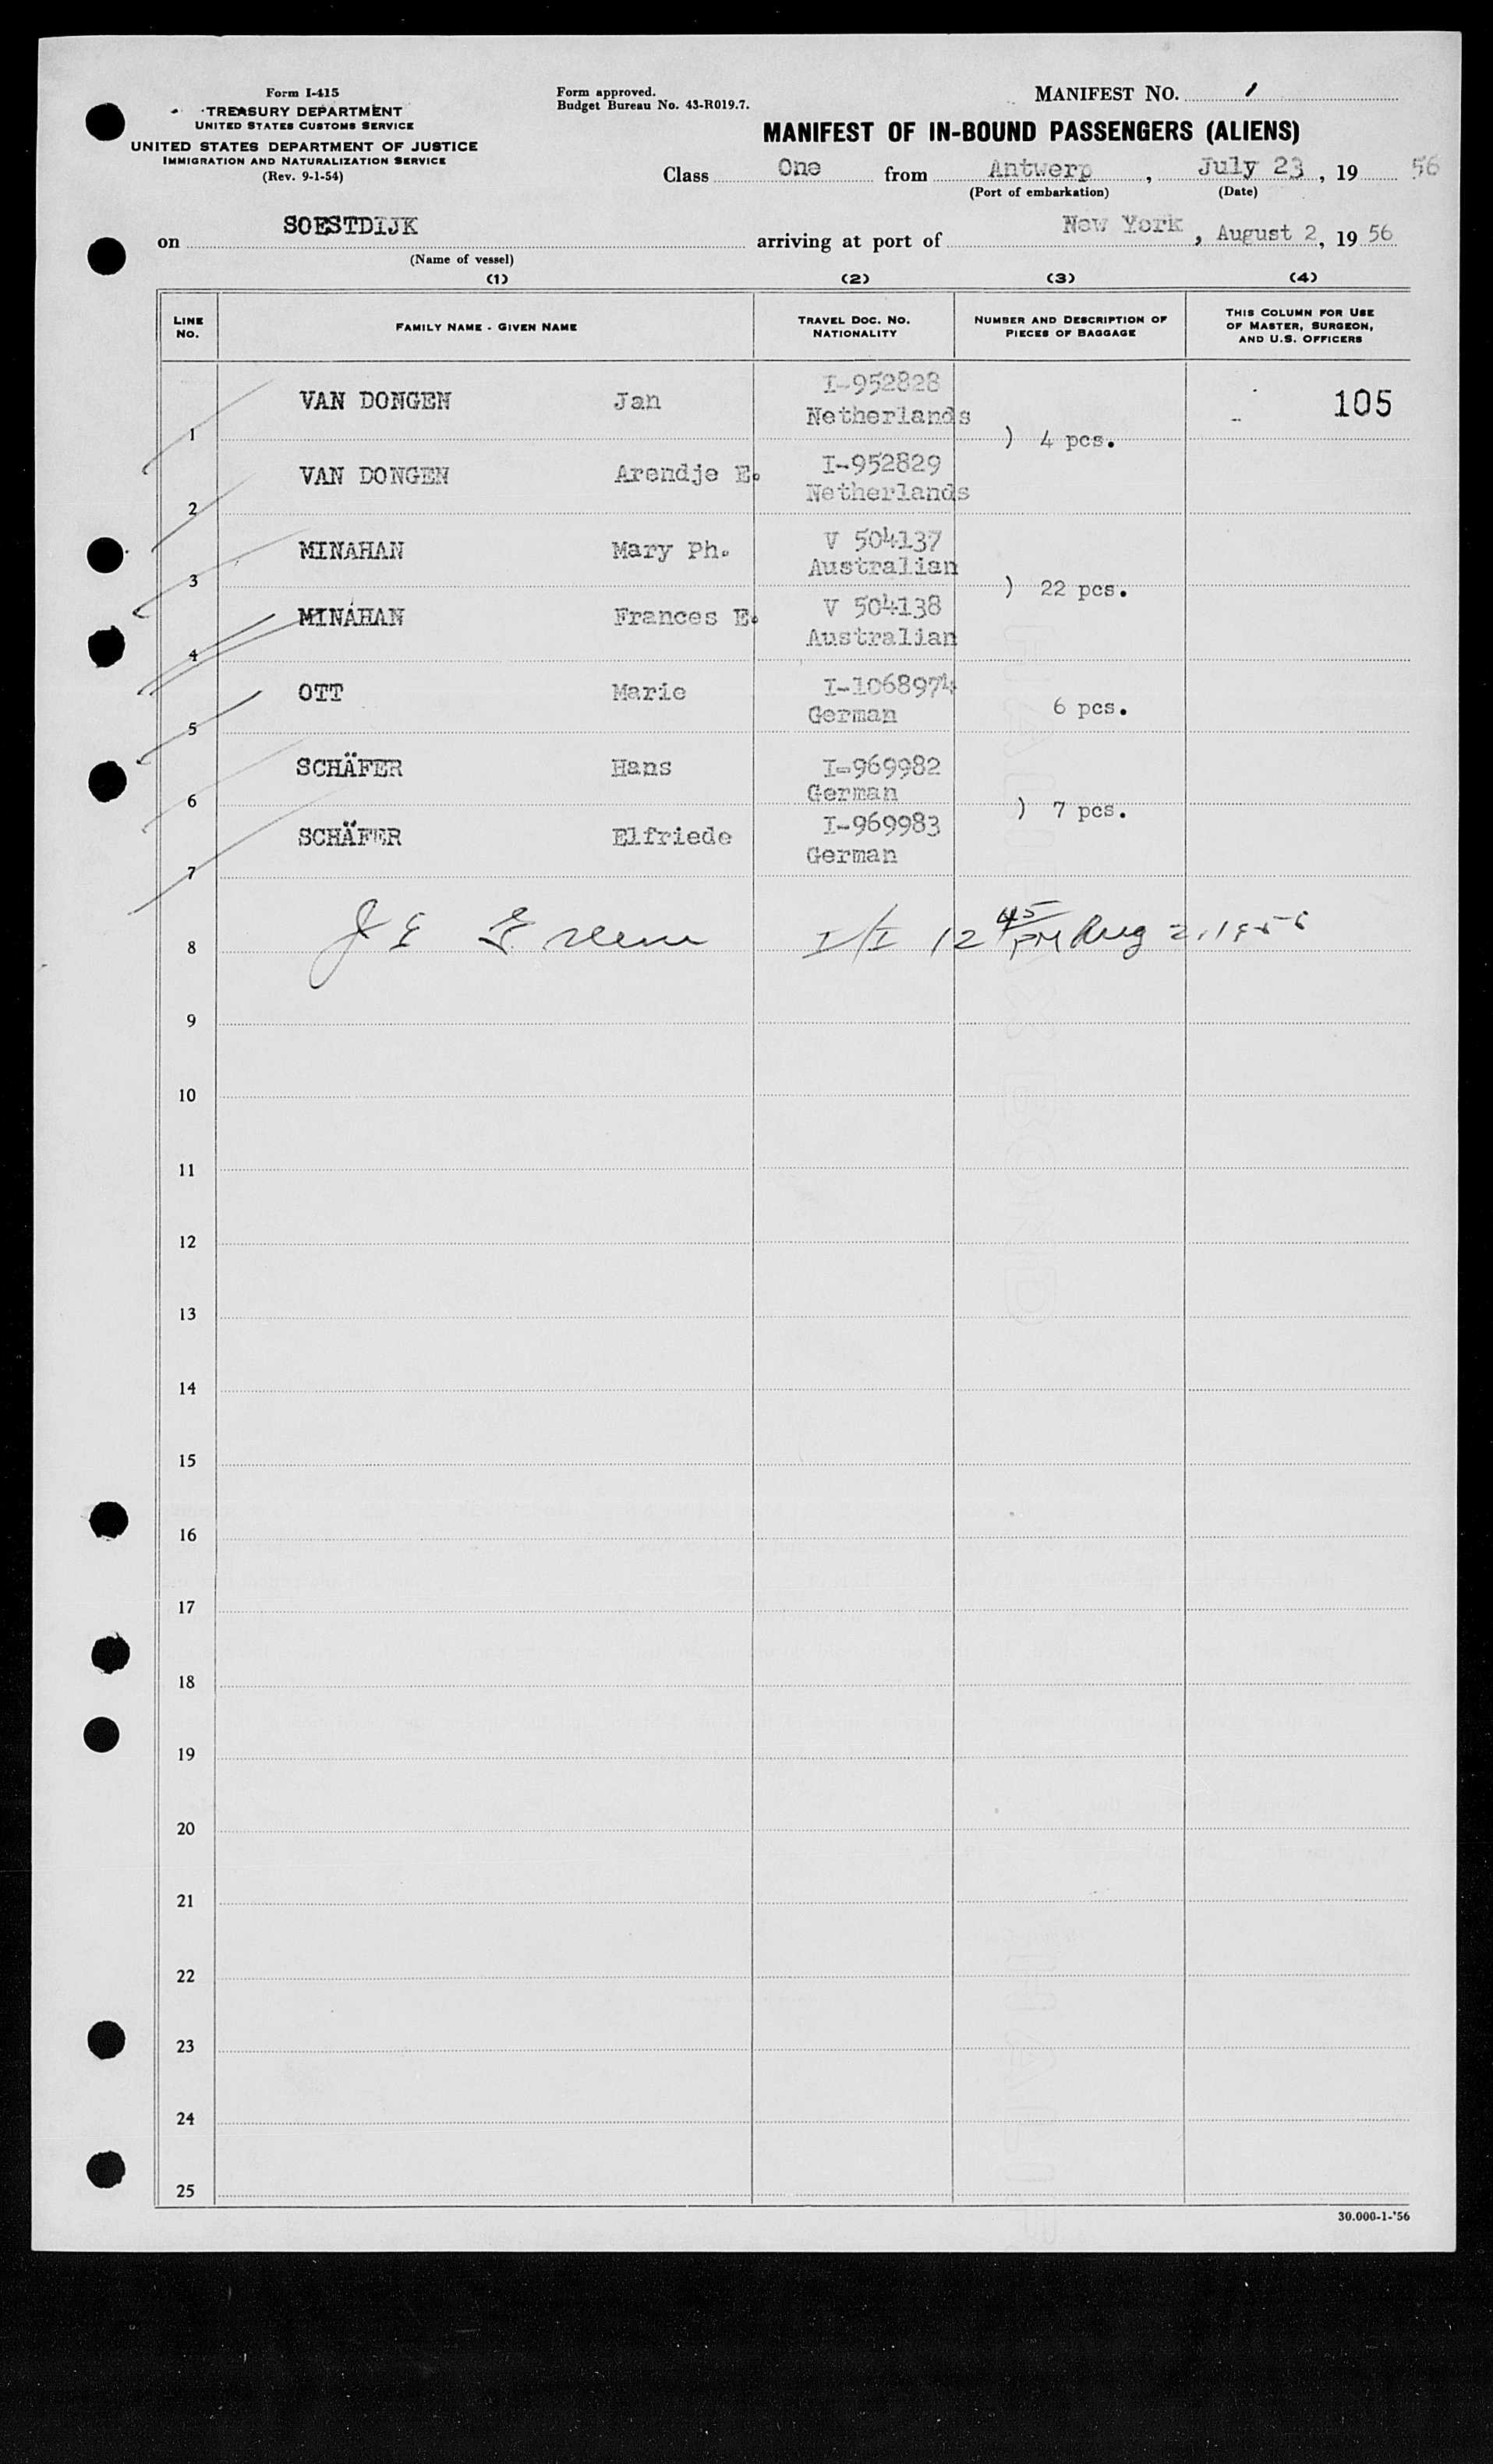 Form I-415
TREASURY DEPARTMENT
UNITED STATES CUSTOMS SERVICE
UNITED STATES DEPARTMENT OF JUSTICE
IMMIGRATION AND NATURALIZATION SERVICE
(Rev. 9-1-54)
Form approved.
Budget Bureau No. 43-R019.7.
MANIFEST NO. 1
MANIFEST OF IN-BOUND PASSENGERS (ALIENS)
Class One from Antwerp, July 23, 19 56
(Port of embarkation) (Date)
on SOESTDIJK arriving at port of New York, August 2, 19 56
(Name of vessel)
(1) (2) (3) (4)
LINE NO. FAMILY NAME - GIVEN NAME TRAVEL DOC. NO. NATIONALITY NUMBER AND DESCRIPTION OF PIECES OF BAGGAGE THIS COLUMN FOR USE OF MASTER, SURGEON, AND U.S. OFFICERS
1 VAN DONGEN Jan I-952828 Netherlands 105
) 4 pcs.
2 VAN DONGEN Arendje E. I-952829 Netherlands
3 MINAHAN Mary Ph. V 504137 Australian
) 22 pcs.
4 MINAHAN Frances E. V 504138 Australian
5 OTT Marie I-1068974 German 6 pcs.
6 SCHÄFER Hans I-969982 German
) 7 pcs.
7 SCHÄFER Elfriede I-969983 German
8 J E Greene I/I 12 45 PM Aug 2, 1956
9
10
11
12
13
14
15
16
17
18
19
20
21
22
23
24
25
30.000-1-'56